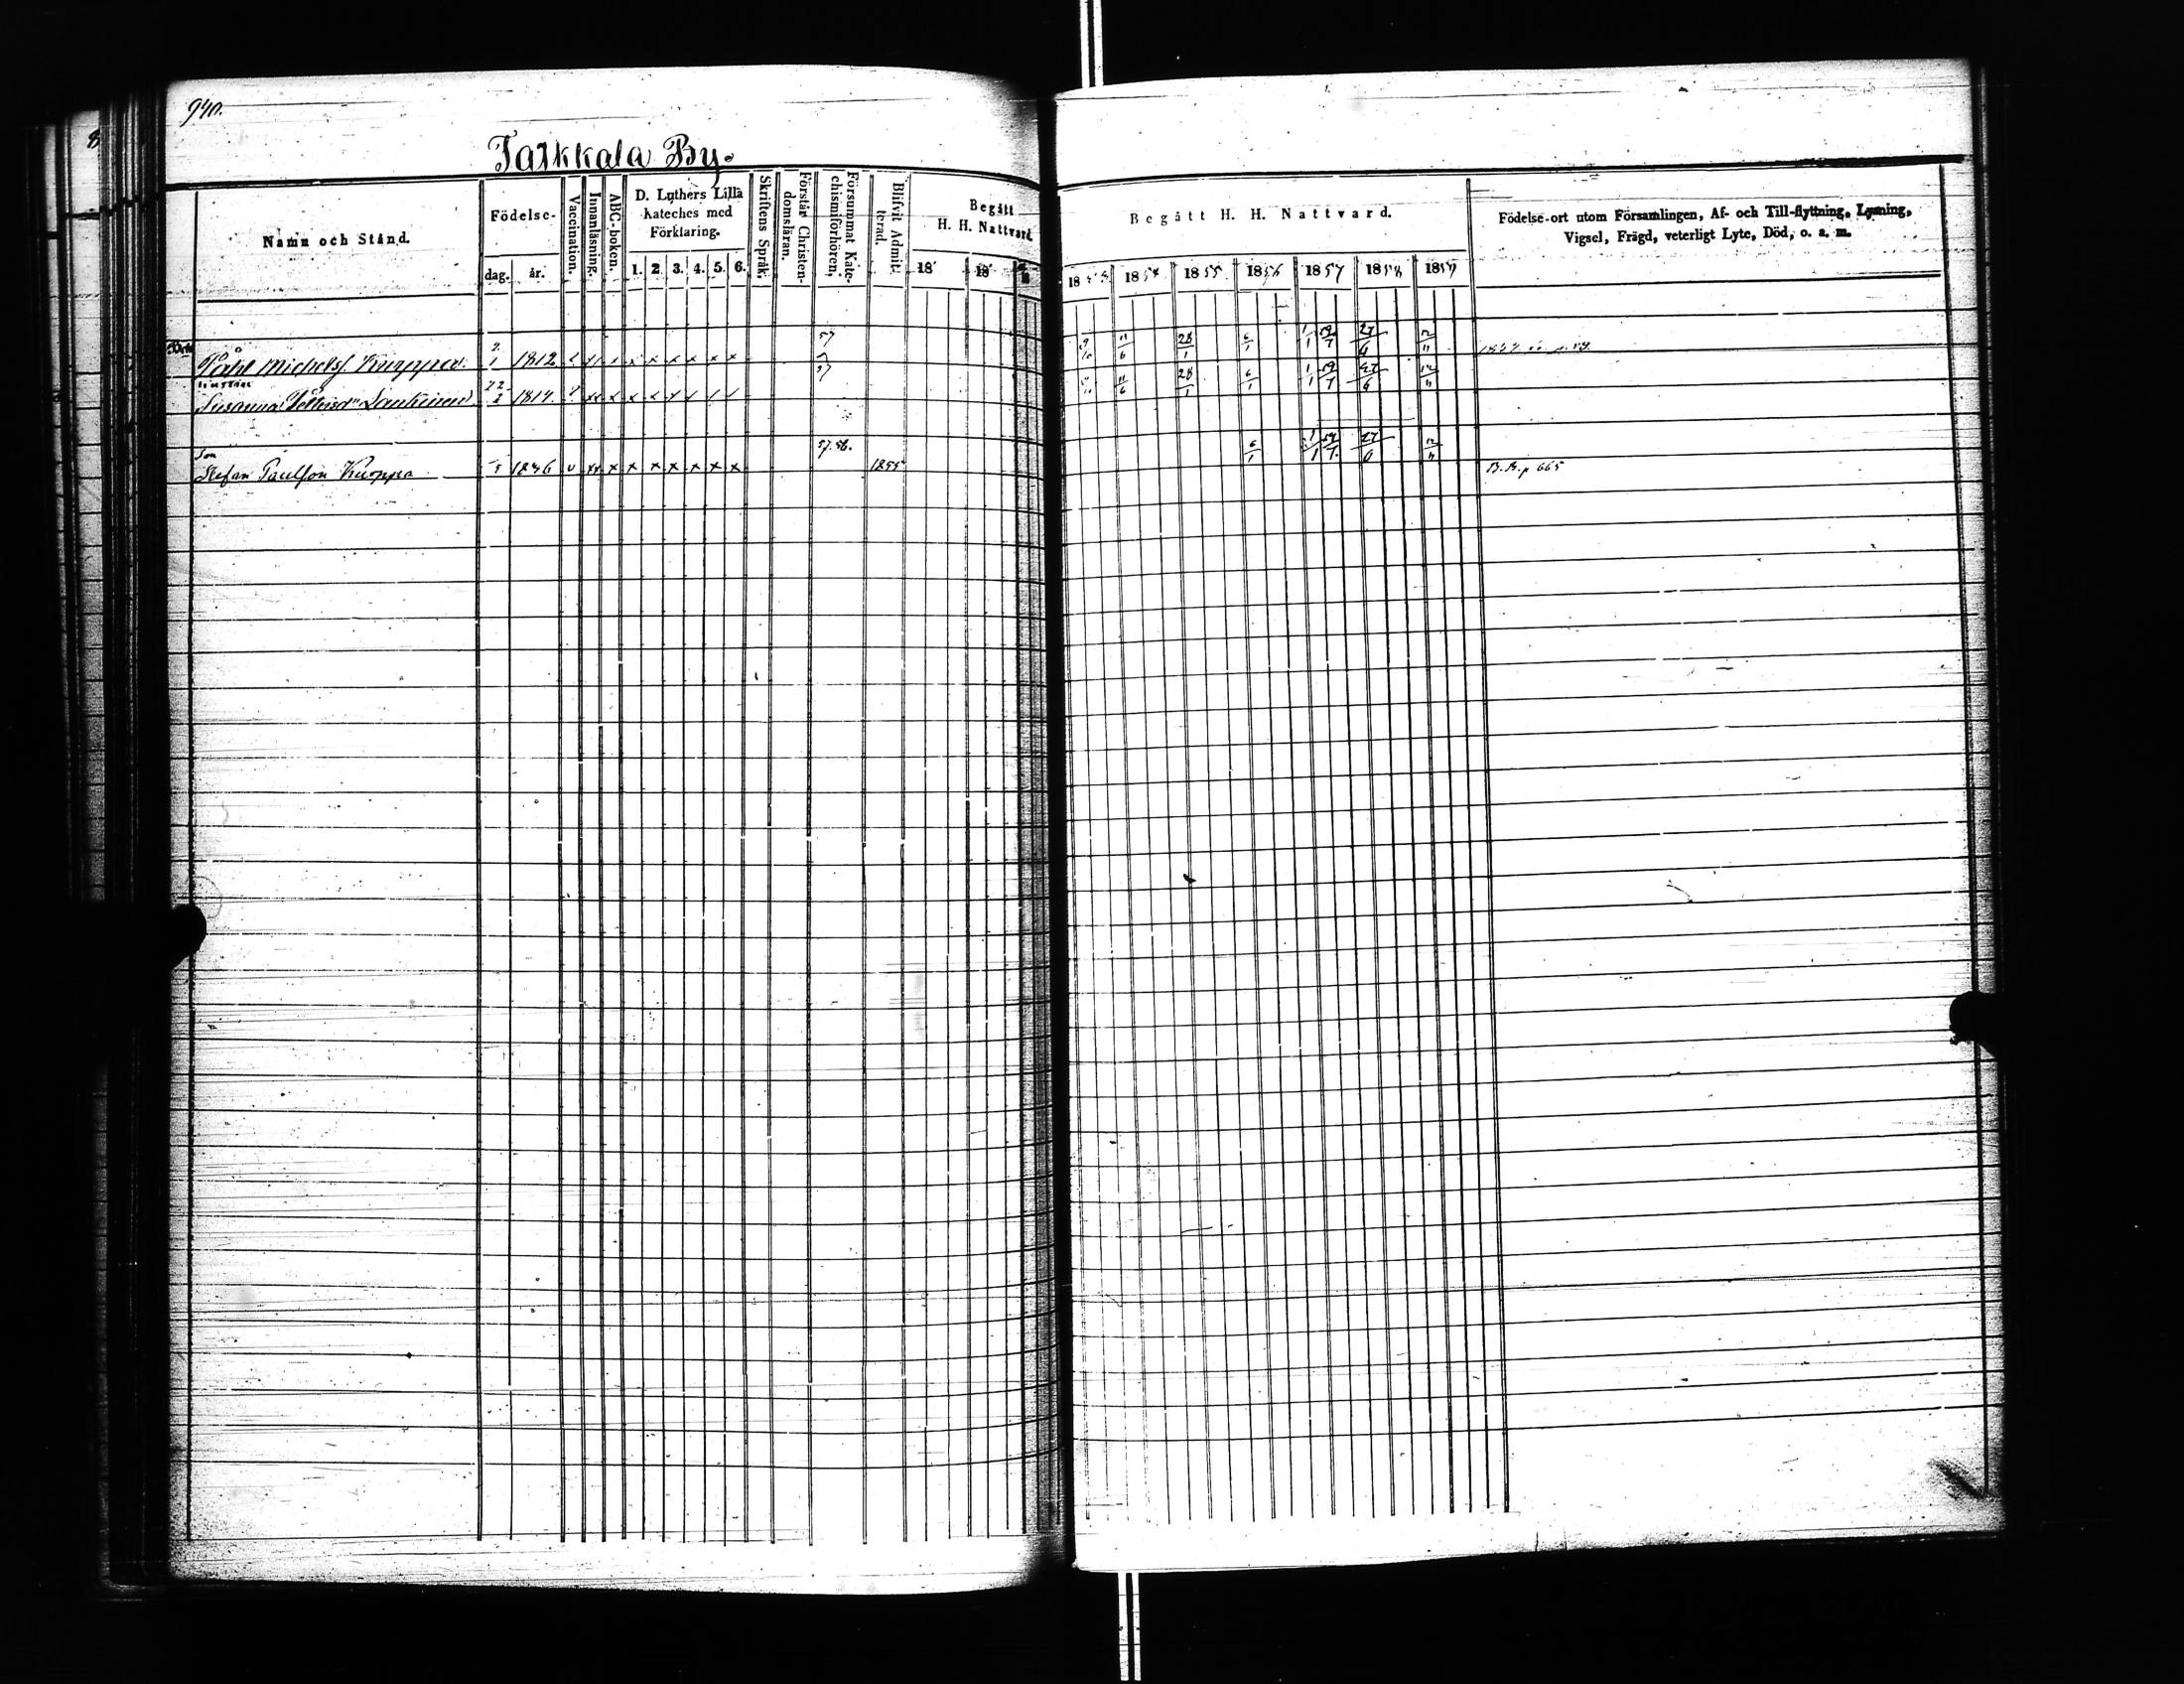 940.
8
Talkkala By.
Namn och Stånd.
Födelse-
dag. år.
Vaccination.
Innanläsning.
ABC-boken.
D. Luthers Lilla
Kateches med
Förklaring.
1. 2. 3. 4. 5. 6.
Skriftens Språk.
Förstår Christen-
domsläran.
Försummat Kate-
chismiförhören.
Blifvit Admit-
terad.
Begått
H. H. Nattvard
18 18
Begått H. H. Nattvard.
18 1854 1855 1856 1857 1858 1859
Födelse-ort utom Församlingen, Af- och Till-flyttning, Lysning,
Vigsel, Frägd, veterligt Lyte, Död, o. a. m.
57
Påhl Michelsf. Kuoppa 2/1 1812 x x x x x x 11/6 28/1 6/1 1/1 19/7 27/6 12/11
57
hustru
Susanna Lankinen 22/2 1814 11/6 28/1 6/1 1/1 19/7 27/6 12/11
57. 58.
Son
Stefan Paulsson Kuoppa 1836 v xx x x x x x x x 1855 6/1 1/1 19/7 27/6 12/11 B.B. p 665